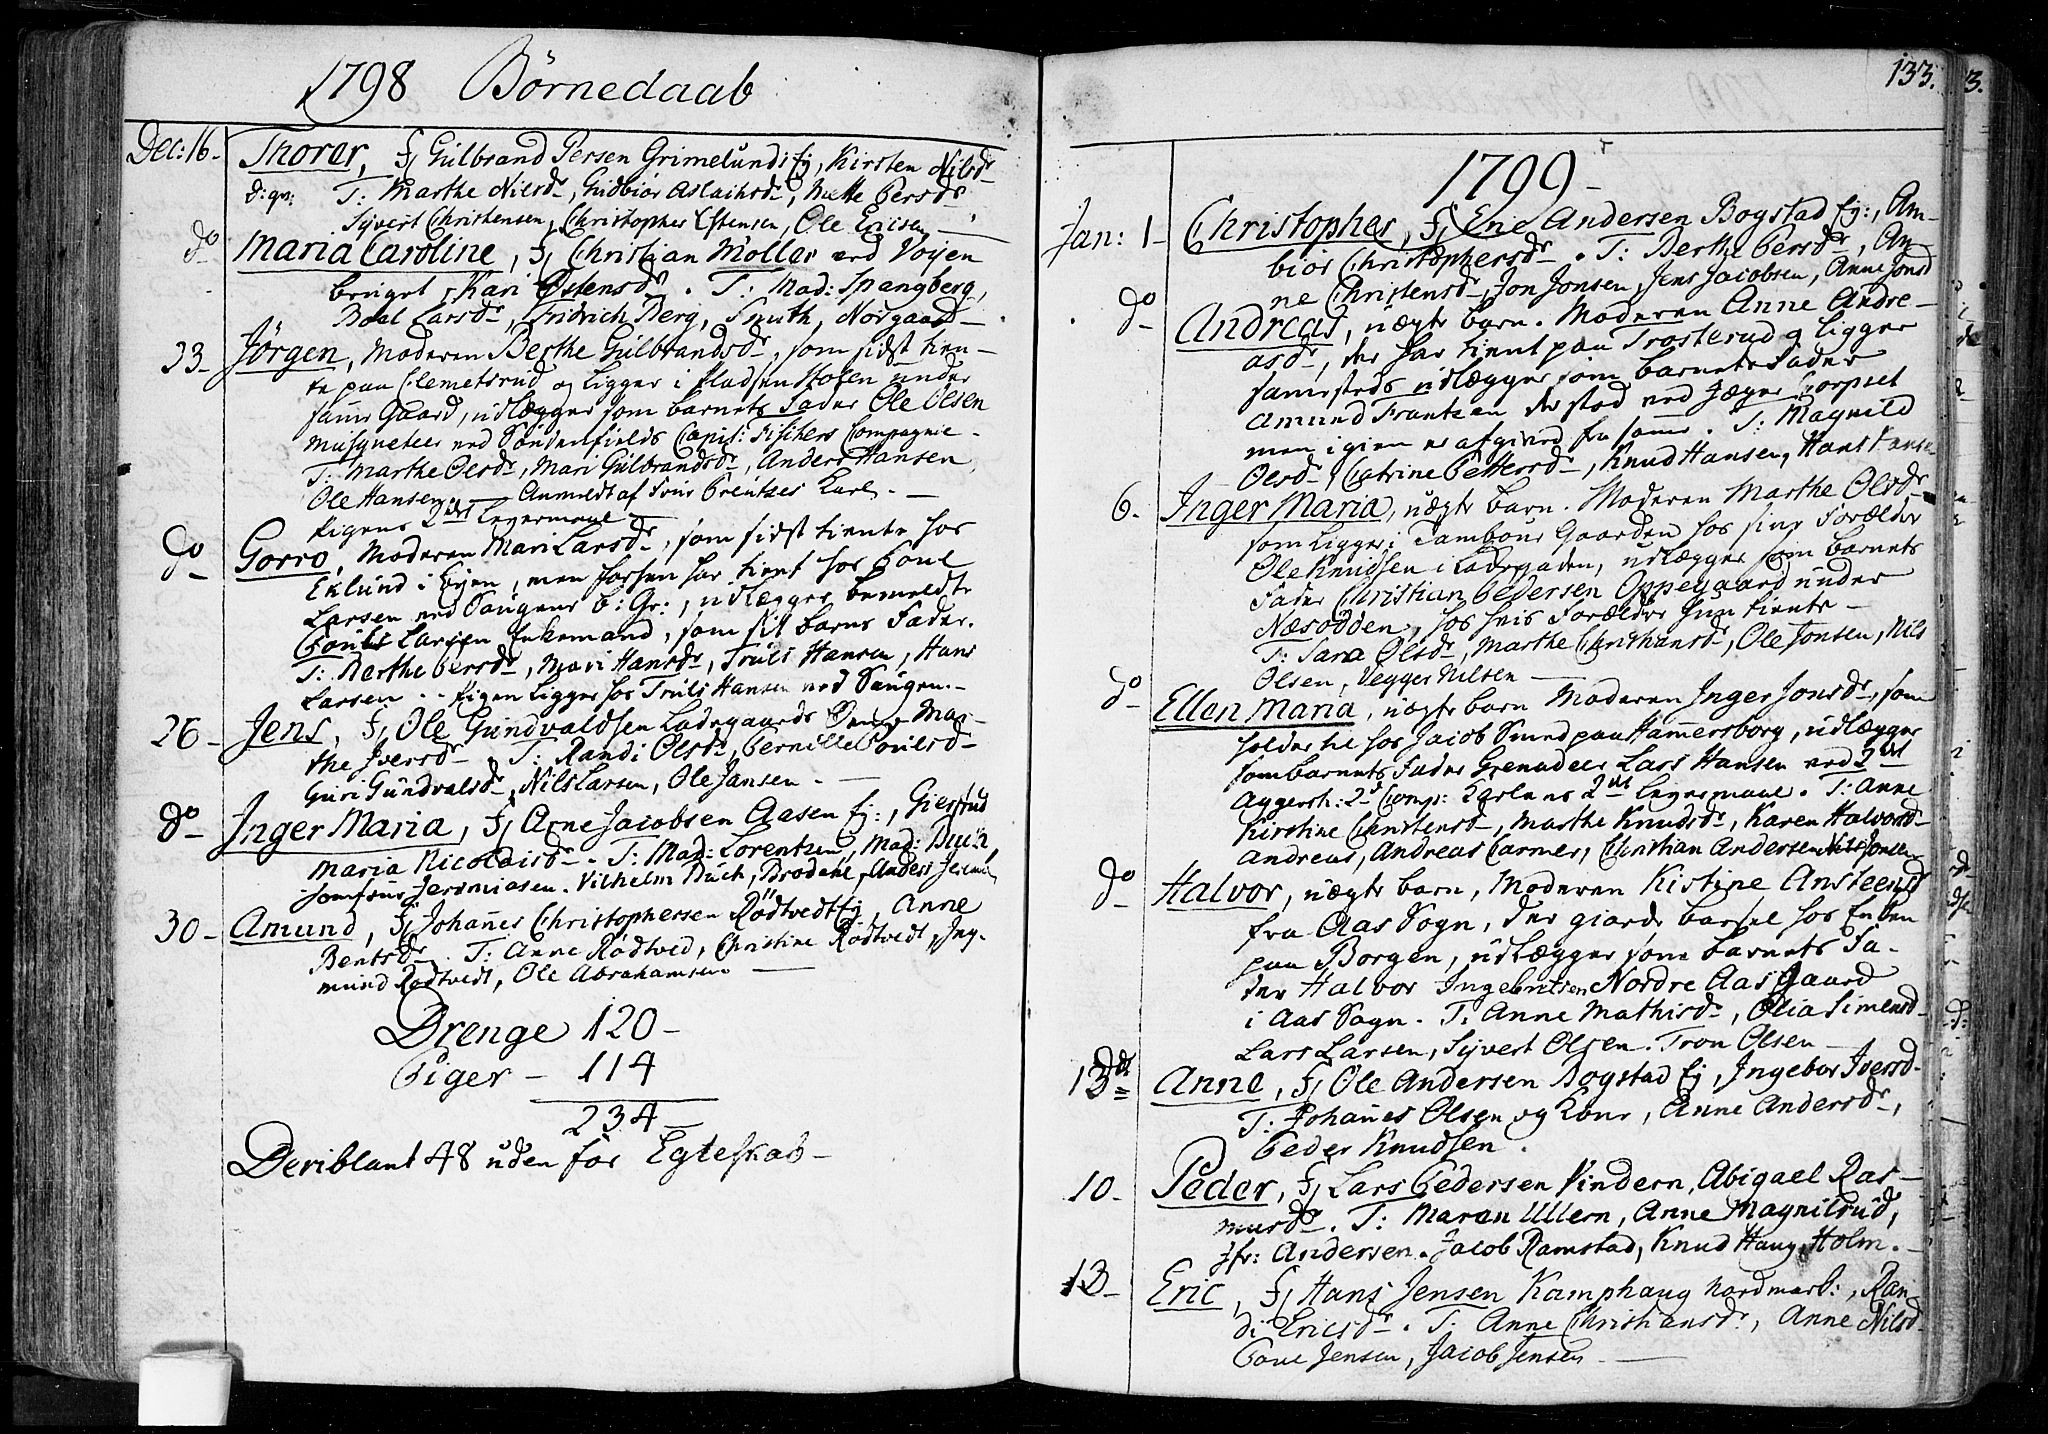 1798 Börnedaab
Dec: 16. Thorer, F, Gulbrand Persen Grimelund: Ej, Kirsten Nilsdr
d: qv: T: Marthe Nilsdr, Gudbiör Aslachsdr, Mette Persdr
Syvert Christensen, Christopher Estensen, Ole Ericsen
do Maria Caroline, F, Christian Möller ved Vöjen
bruget, Kari Östensdr. T: Mad: Spangberg,
Boel Larsdr, Fridrich Berg, Smith, Norgaard
23. Jörgen, Moderen Berthe Gulbrandsdr, som sidst tien-
te paa Clemetsrud og ligger i Pladsen Stolen under
samme Gaard, udlægger som barnets Fader Ole Olsen
Musqueteer ved Söndenfields Capit: Fischers Compagnie.
T: Marthe Olsdr, Mari Gulbrandsdr, Anders Hansen,
Ole Hansen. Anmeldt af
Pigens 2den Legermaal
do Gorro, Moderen Mari Larsdr, som sidst tiente hos
Eklund i Byen, men forhen har tient hos Poul
Larsen ved Saugene b: Gr:, udlægger bemeldte
Poul Larsen Enkemand, som sit barns Fader.
T: Berthe Persdr, Mari Hansdr, Truls Hansen, Hans
Larsen. Pigen ligger hos Truls Hansen ved Saugen.
26 Jens, F, Ole Gundvaldsen Ladegaards Mar-
the Iversdr. T: Randi Olsdr, Pernille Poulsd
Guri Gundvalsdr, Nils Larsen, Ole Jansen.
do Inger Maria, F, Arne Jacobsen Aasen Ej:, Giertrud
Maria Nicolaisdr. T: Mad: Lorentzen, Mad: Buch,
Jomfrue Jeremiasen. Vilhelm Buch, Brodahl, Anders
30 Amund, F, Johañes Christophersen Rödtvedt Ej, Anne
Bentsdr. T: Anne Rödtved, Christine Rödtvedt, Ing-
mund Rödtvedt, Ole Abrahamsen
Drenge 120
Piger 114
234
Deriblant 48 uden for Egteskab
133.
1799
Jan: 1 Christopher, F, Eric Andersen Bogstad Ej:, Am-
biör Christophersdr. T: Berthe Persdr, An-
ne Christensdr, Jon Jonsen, Jens Jacobsen, Anne Jonsd
do Andreas, uægte barn. Moderen Anne Andre-
asdr, der har tient paa Trosterud og ligger
sammesteds udlægger som barnets Fader
Amund Frantzen der stod ved Jæger Corpset
men igien er afgived fra samme. T: Magnild
Olsdr, Catrine Pettersdr, Knud Hansen, Hans
6. Inger Maria, uægte barn. Moderen Marthe Olsdr
som ligger i Tambour Gaarden hos sine Forældre
Ole Knudsen i Ladegaden, udlægger som barnets
Fader Christian Pedersen Oppegaard under
Næsodden, hos hvis Forældre hun tiente
T: Sara Olsdr, Marthe Christiansdr, Ole Jonsen, Nils
Olsen, Vegger Nilsen
do Ellen Maria, uægte barn Moderen Inger Jonsdr, som
holder til hos Jacob Smed paa Hammersborg, udlægger
som barnets Fader Grenadeer Lars Hansen ved 2det
Aggersh: 2det Comp: Karlens 2det Legermaal. T: Anne
Kirstine Christensdr, Marthe Knudsdr, Karen Halvorsd
Andreas, Andreas Larmer, Christian Andersen Nils Jonsen
do Halvor, uægte barn, Moderen Kistine Ansteensd
fra Aas Sogn, der giorde barsel hos Enken
paa Borgen, udlægger som barnets Fa-
der Halvor Ingebritsen Nordre Aas Gaard
i Aas Sogn. T: Anne Mathisdr, Olia Simensd
Lars Larsen, Syvert Olsen. Tron Olsen
13de Anne, F, Ole Andersen Bogstad Ej, Ingebor Iversd.
T: Johañes Olsen og Kone, Anne Andersdr,
Peder Knudsen.
10 Peder, F, Lars Pedersen Vindern, Abigael Ras-
musdr. T: Maren Ullern, Anne Magnilsrud,
Jfr: Andersen. Jacob Ramstad, Knud Haug, Holm.
13 Eric, F, Hans Jensen Kamphaug Nordmark:, Ran-
di Ericsdr. T: Anne Christiansdr, Anne Nilsd
Poul Jensen, Jacob Jensen